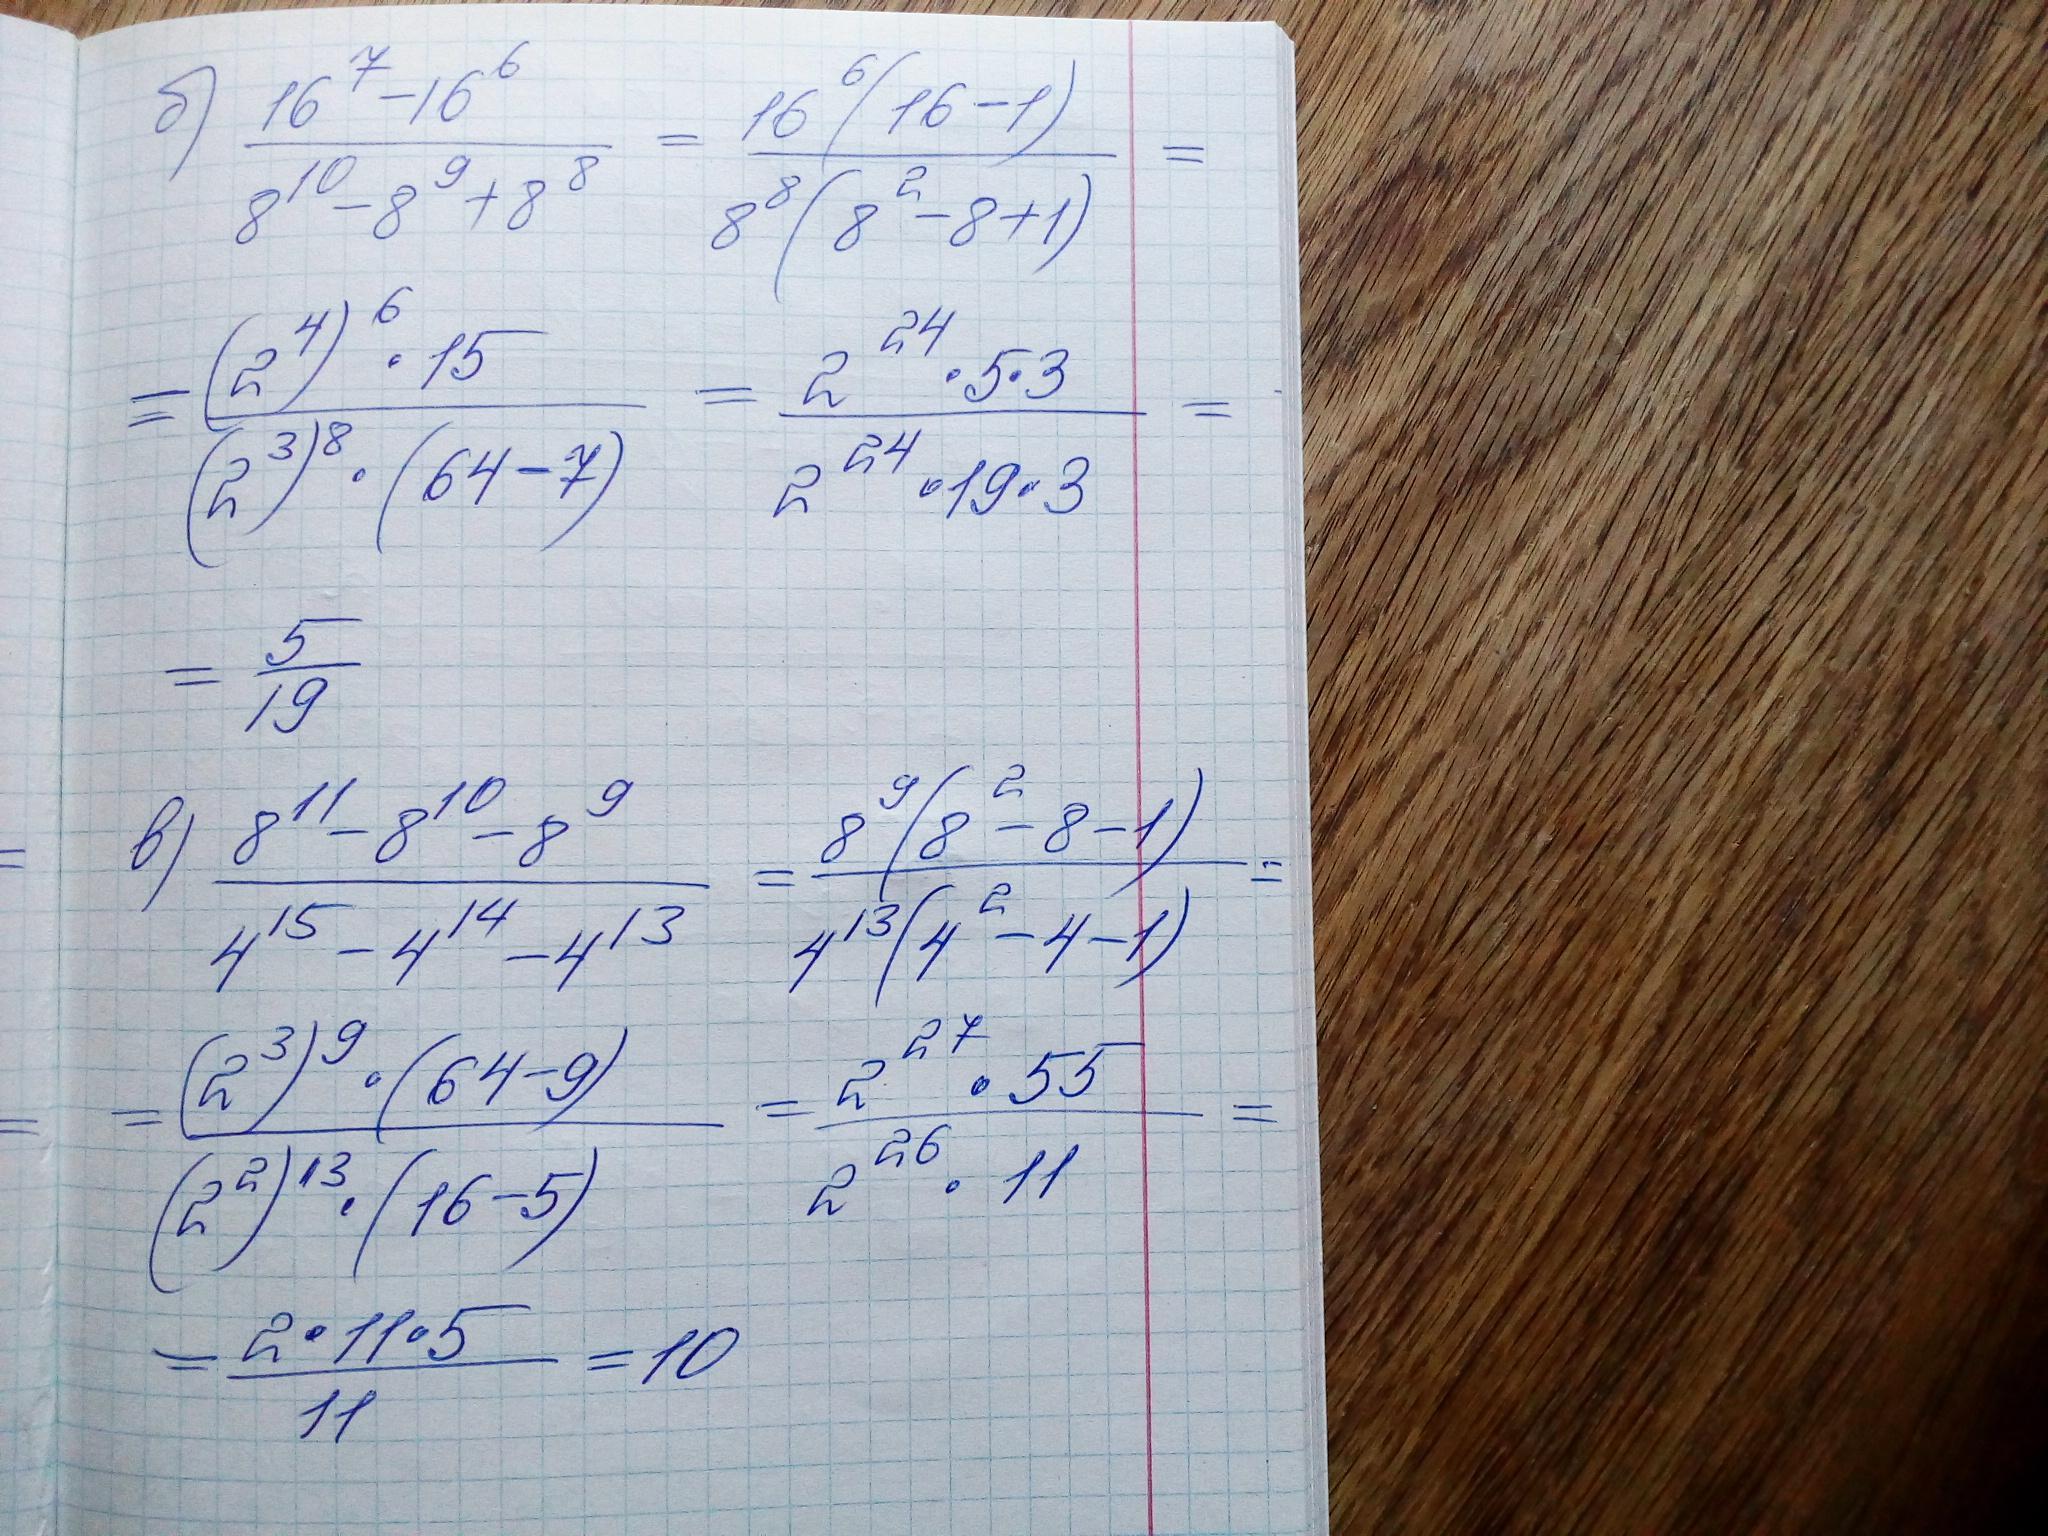 б) (16^7 - 16^6)/(8^10 - 8^9 + 8^8) = (16^6(16 - 1))/(8^8(8^2 - 8 + 1)) =
= ((2^4)^6 · 15)/((2^3)^8 · (64 - 7)) = (2^24 · 5 · 3)/(2^24 · 19 · 3) =
= 5/19
в) (8^11 - 8^10 - 8^9)/(4^15 - 4^14 - 4^13) = (8^9(8^2 - 8 - 1))/(4^13(4^2 - 4 - 1)) =
= ((2^3)^9 · (64 - 9))/((2^2)^13 · (16 - 5)) = (2^27 · 55)/(2^26 · 11) =
= (2 · 11 · 5)/11 = 10